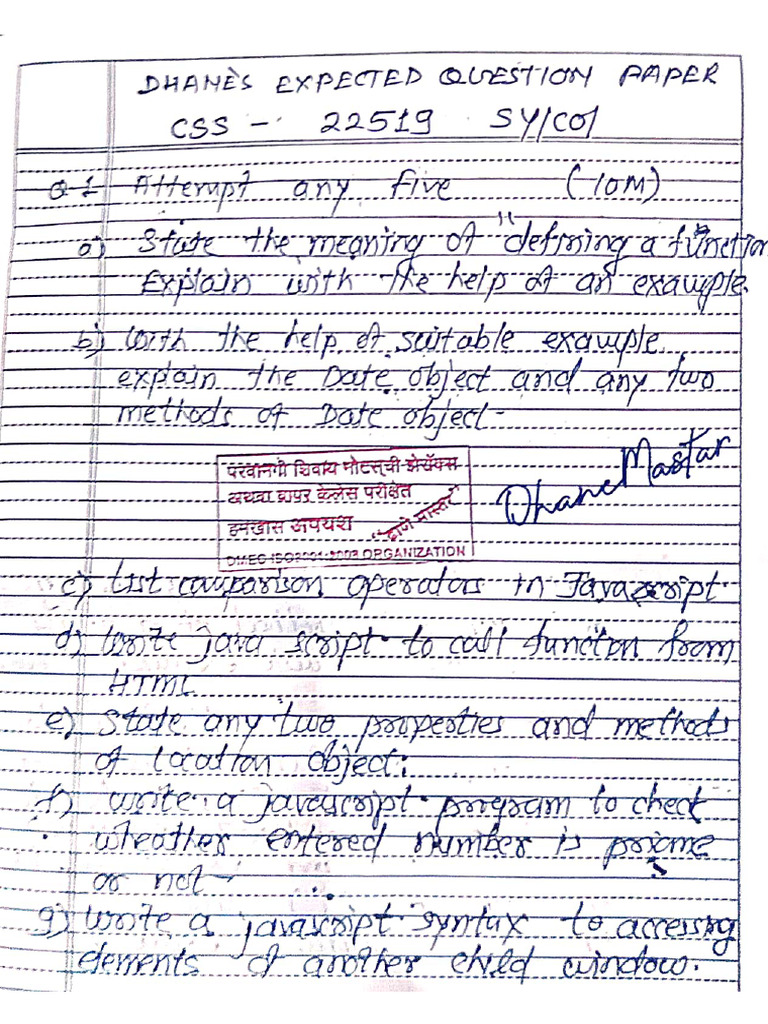 DHANE'S EXPECTED QUESTION PAPER
CSS - 22519 SY/CO/
Q 1 Attempt any five (10M)
a) State the meaning of "defining a function
Explain with the help of an example.
b) With the help of suitable example
explain the Date object and any two
methods of Date object-
Dhane Mastar
परवानगी शिवाय नोटसची झेरॉक्स
अथवा वापर केलेस परीक्षेत
हमखास अपयश "ढाणे मास्तर"
DMEG ISO9001:2008 ORGANIZATION
c) List comparison operators in Javascript
d) Write java script to call function from
HTML
e) State any two properties and methods
of location object:
f) write a javascript program to check
wheather entered number is prime
or not-
g) Write a javascript syntax to accessing
elements of another child window.